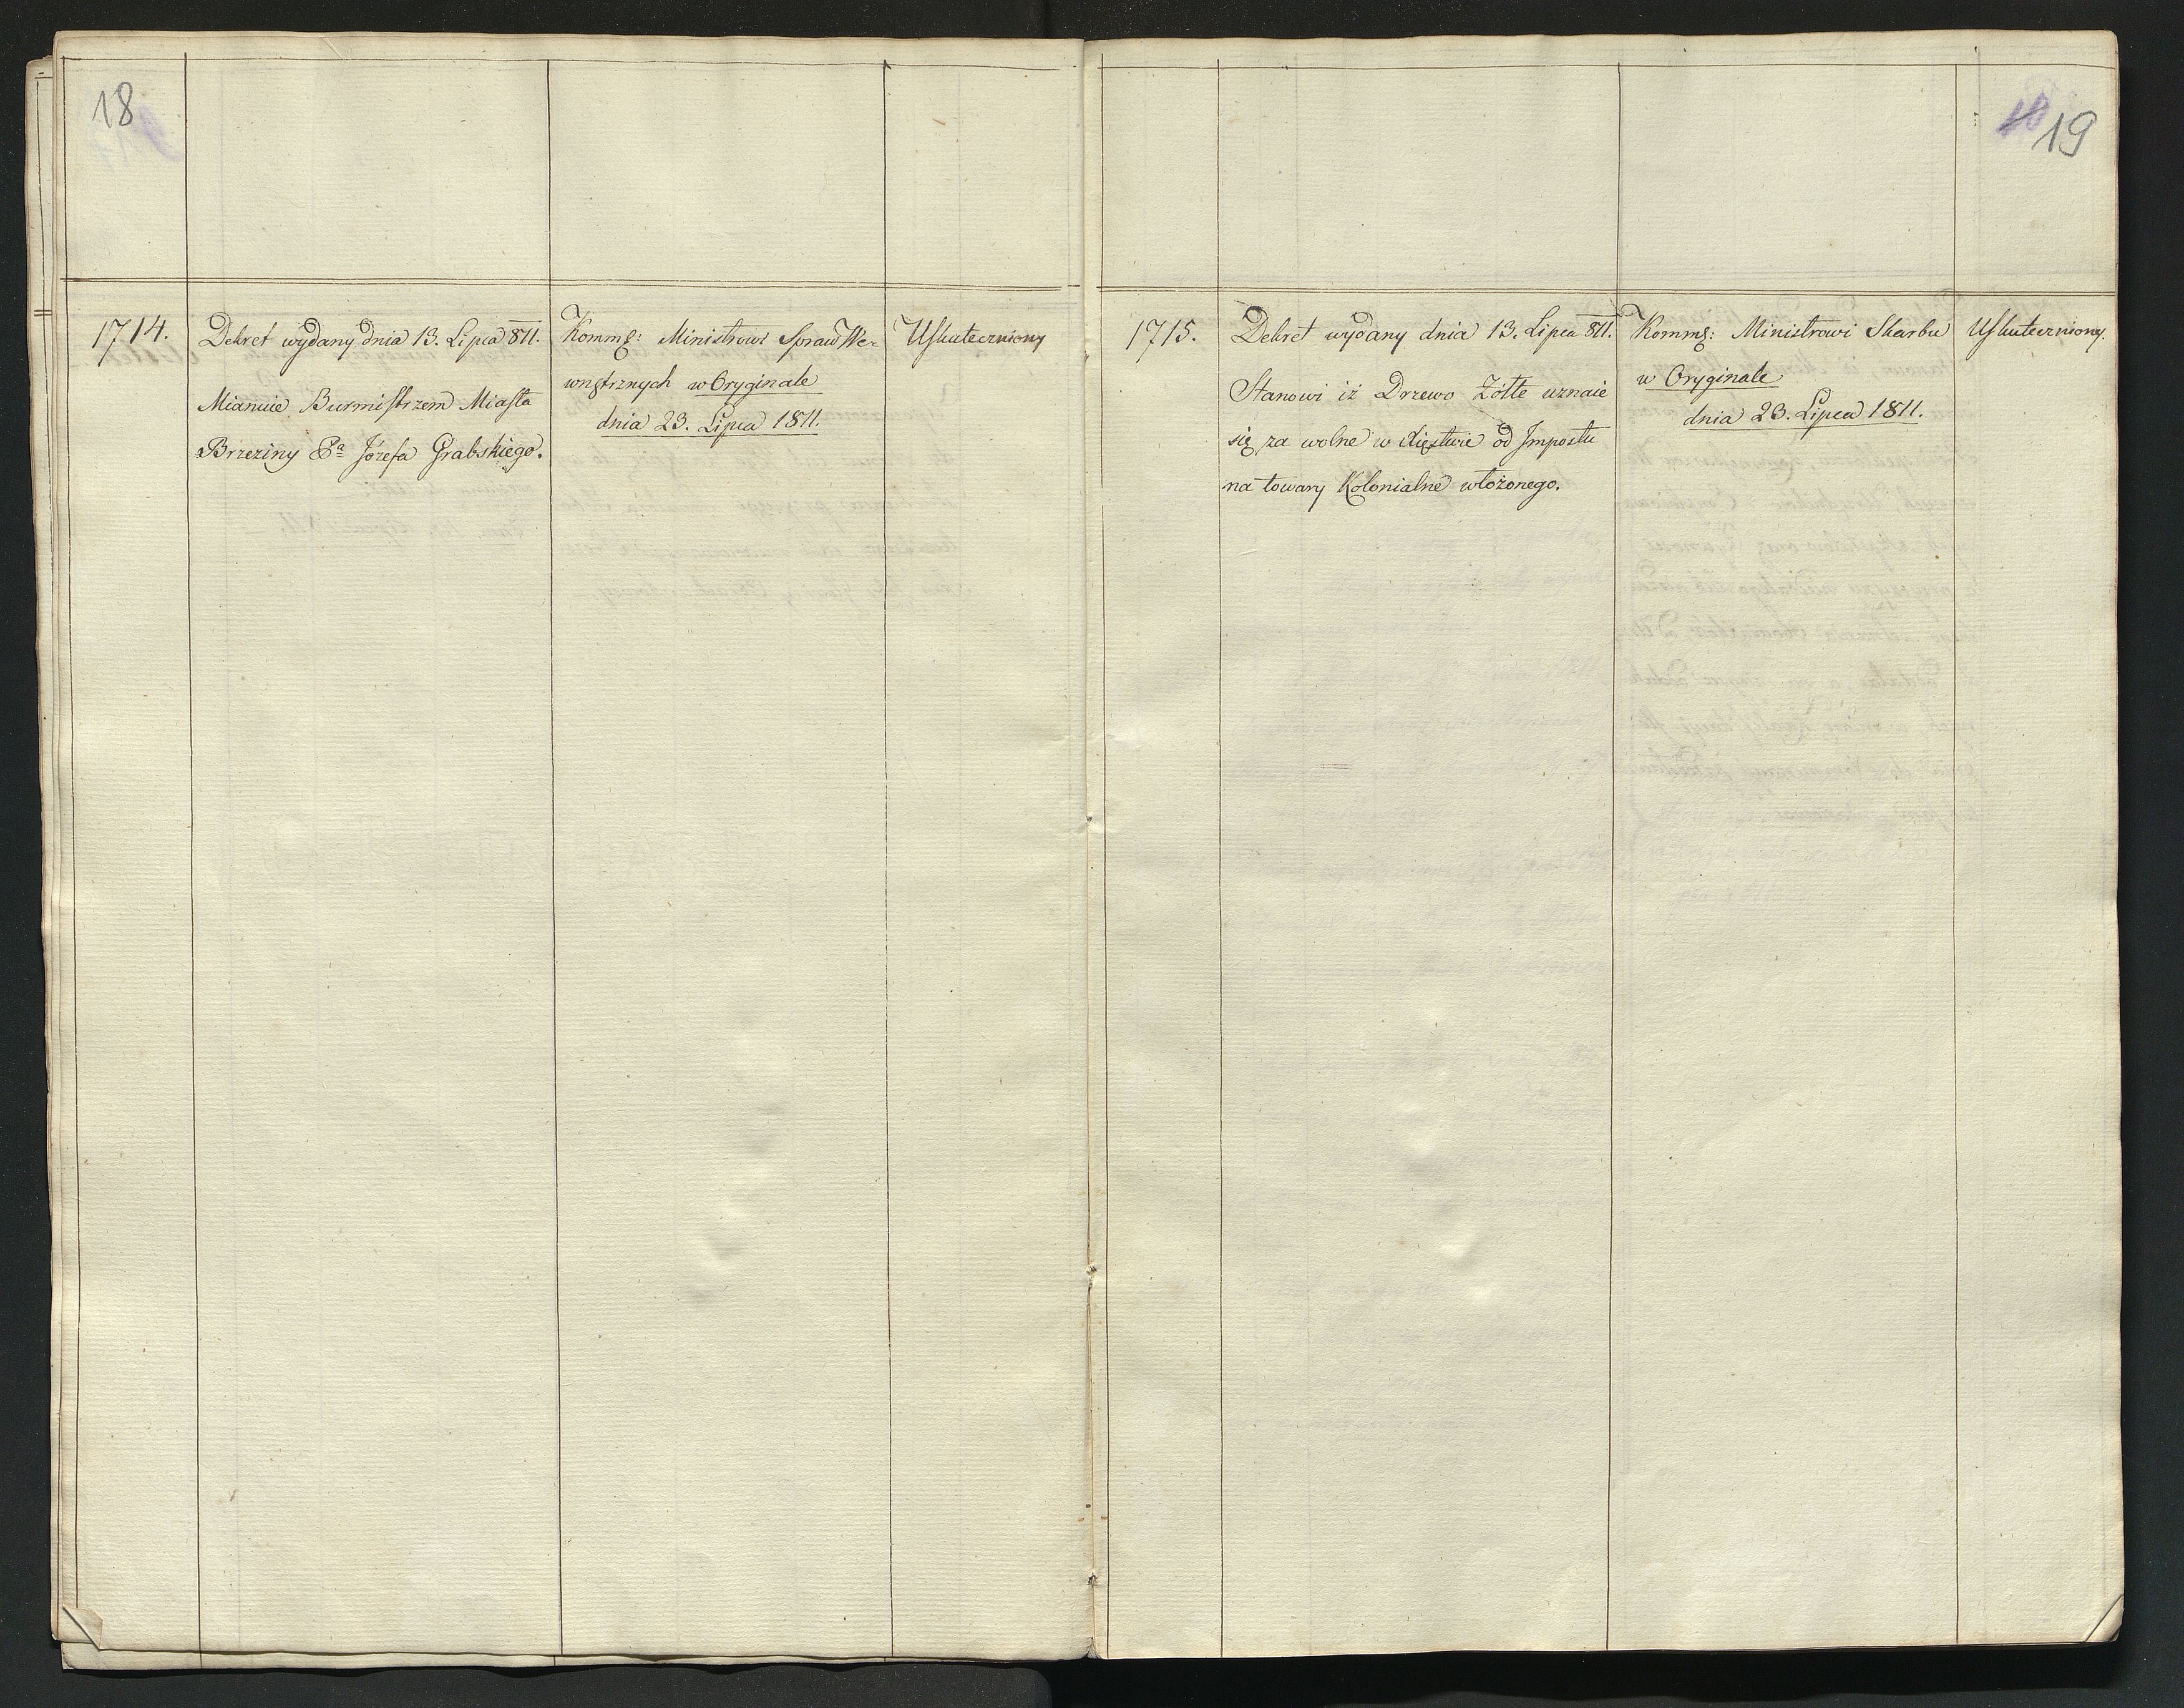 18
1714.
Dekret wydany dnia 13. Lipca 811.
Mianuie Burmistrzem Miasta
Brzeziny Pa Józefa Grabskiego.
Kommg: Ministrowi Spraw We-
wnętrznych w Oryginale
dnia 23. Lipca 1811.
Uskuteczniony
10 19
1715.
Dekret wydany dnia 13. Lipca 811.
Stanowi iż Drzewo Żółte uznaie
się za wolne w Xięstwie od Impostu
na towary Kolonialne włożonego.
Kommg: Ministrowi Skarbu
w Oryginale
dnia 23. Lipca 1811.
Uskuteczniony.